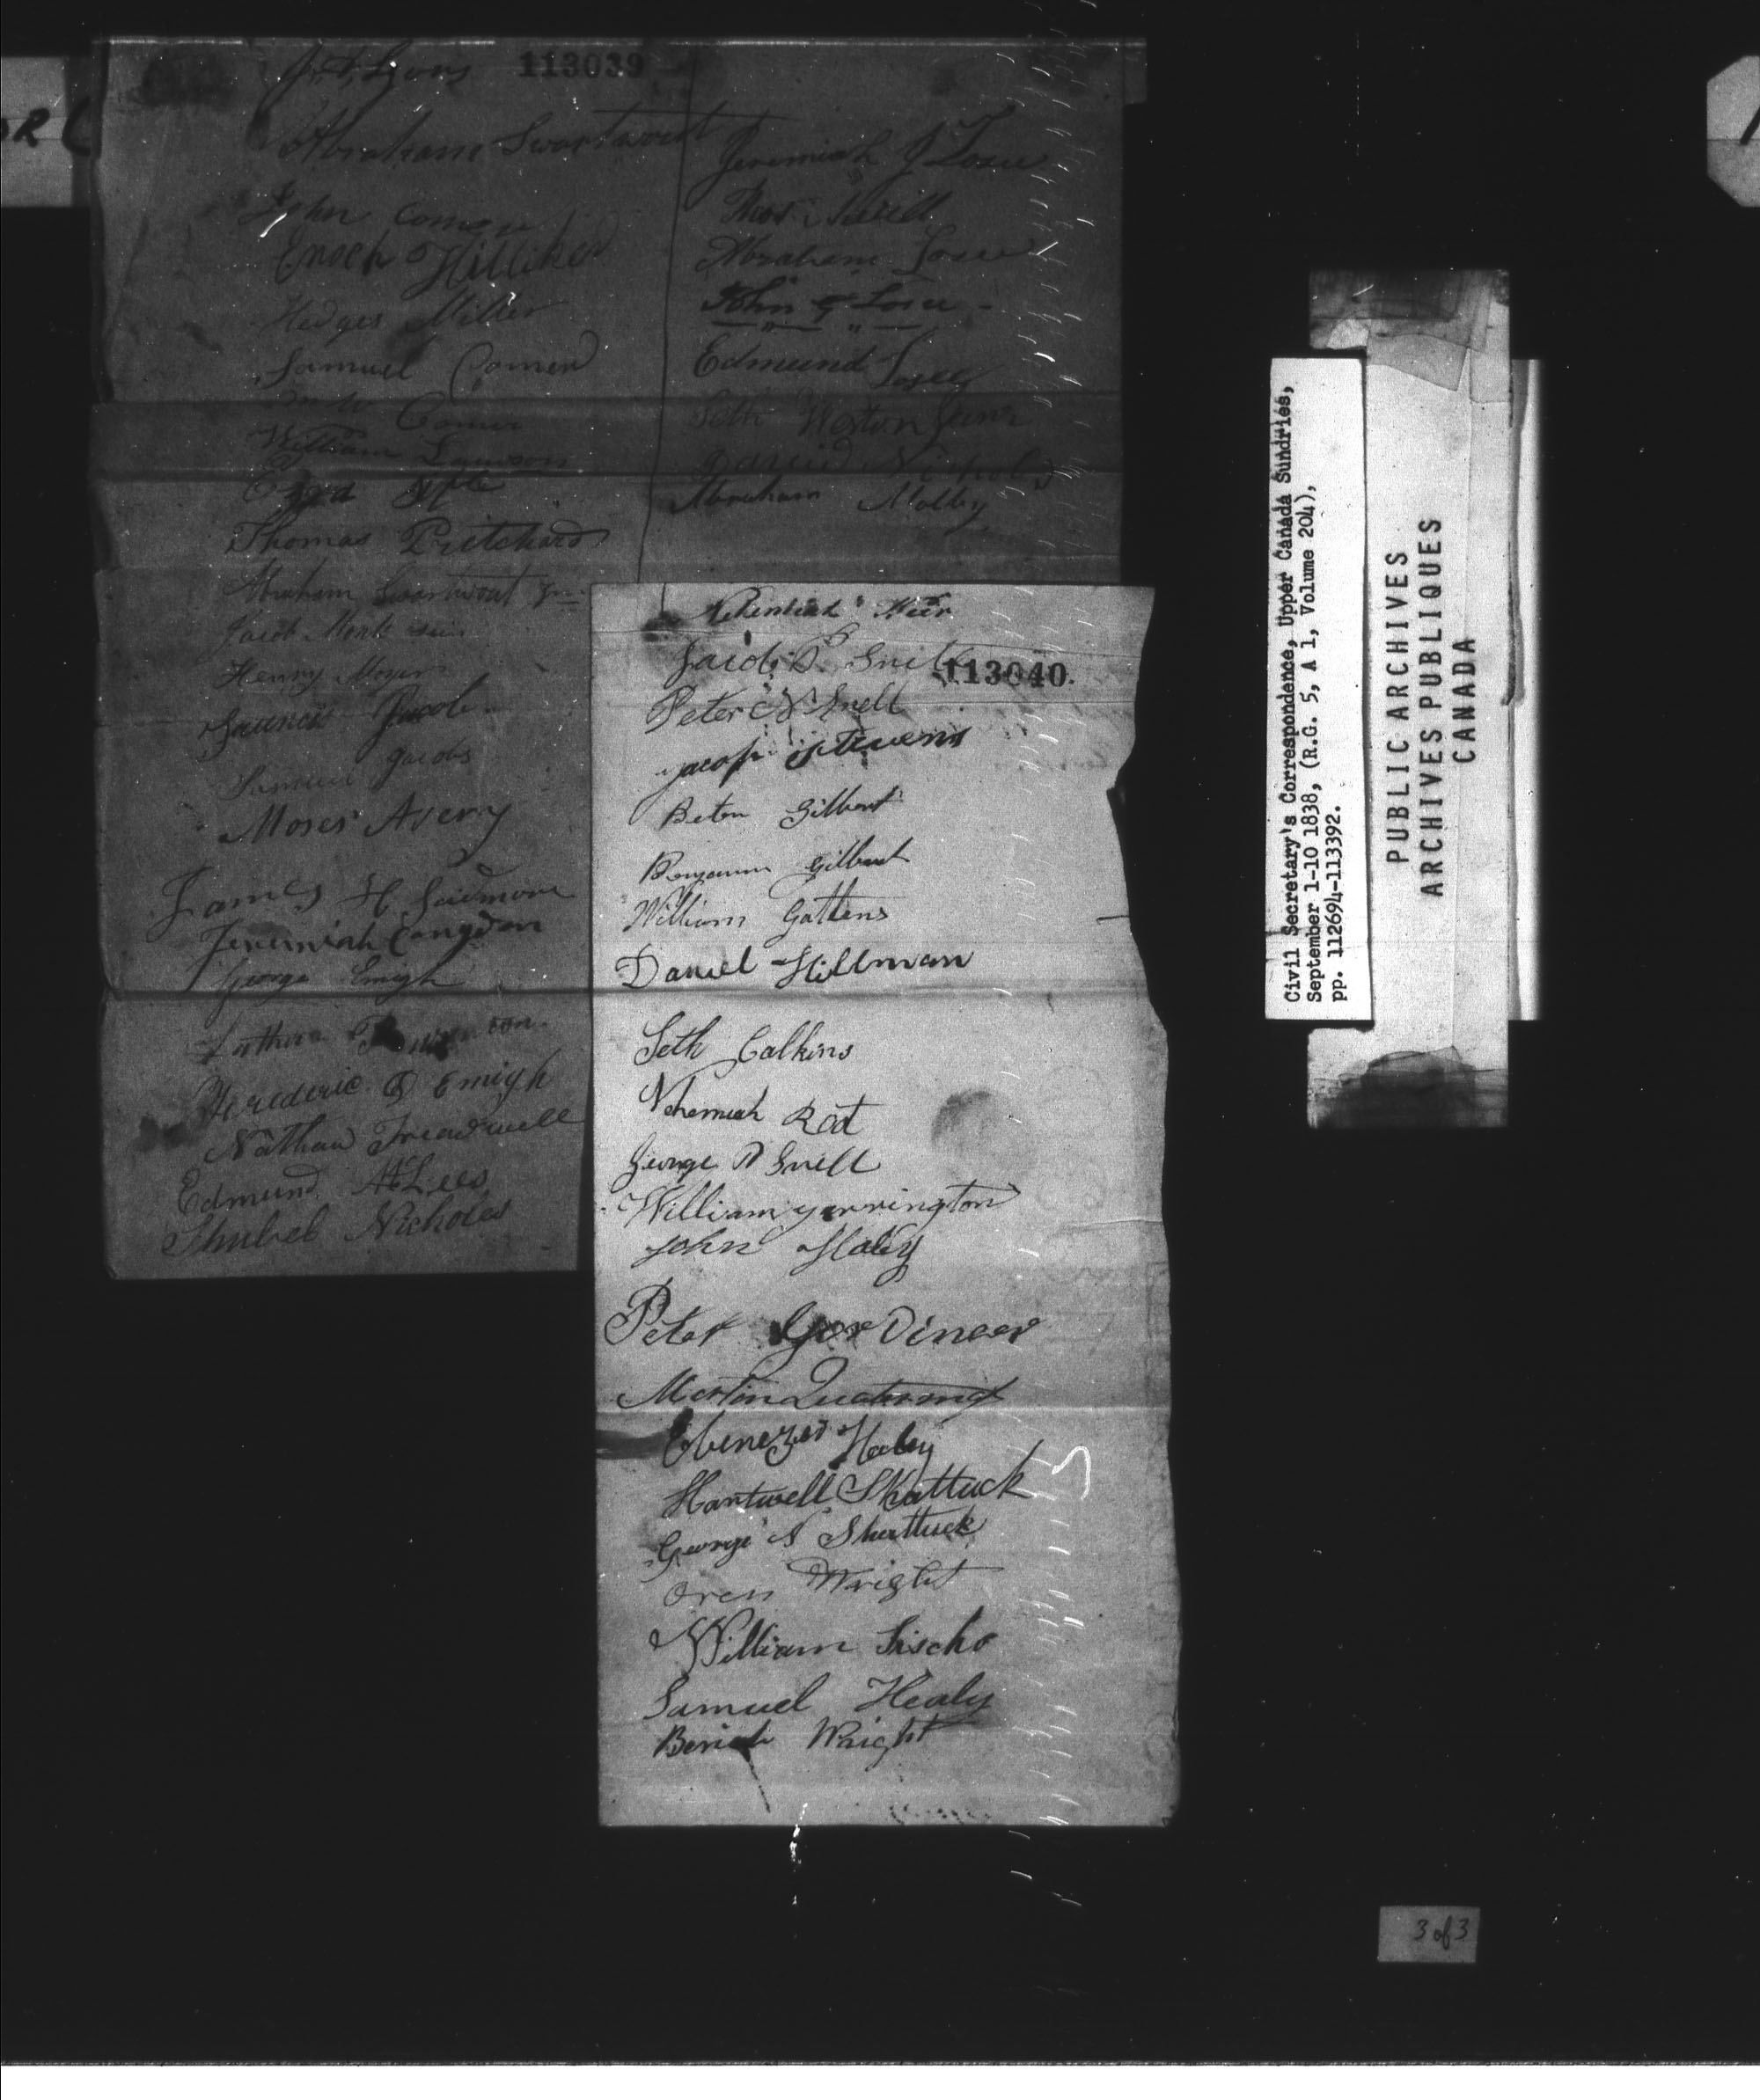 113039
Lyons
Abraham Swartwout
John Comer
Enoch Hilliker
Hedges Miller
Samuel Comer
Comer
William Lawson
Thomas Pritchard
Abraham Swartwout Jun
Jacob
Henry Moyer
Jacob
Samuel Jacobs
Moses Avery
James H
Jeremiah Congdon
George Emigh
Frederic Emigh
Nathan Treadwell
Edmund A Lees
Shubel Nicholes
Jeremiah J Losee
Thos Snell
Abraham Losee
John G Losee
Edmund Losee
Seth Weston Junr
David Nichols
Abraham Molby
Nehemiah
Jacob Snell
113040.
Peter N Snell
Jacob Stevens
Beton Gilbert
Benjamin Gilbert
William Gattens
Daniel Hillman
Seth Calkins
Nehemiah Rot
George Snell
William Yarrington
John Haley
Peter Gordineer
Martin
Ebenezer Healy
Hartwell Shattuck
George N Shattuck
Oren Wright
William Sischo
Samuel Healy
Beriah Wright
Civil Secretary's Correspondence, Upper Canada Sundries,
September 1-10 1838, (R.G. 5, A 1, Volume 204),
pp. 112694-113392.
PUBLIC ARCHIVES
ARCHIVES PUBLIQUES
CANADA
3 of 3